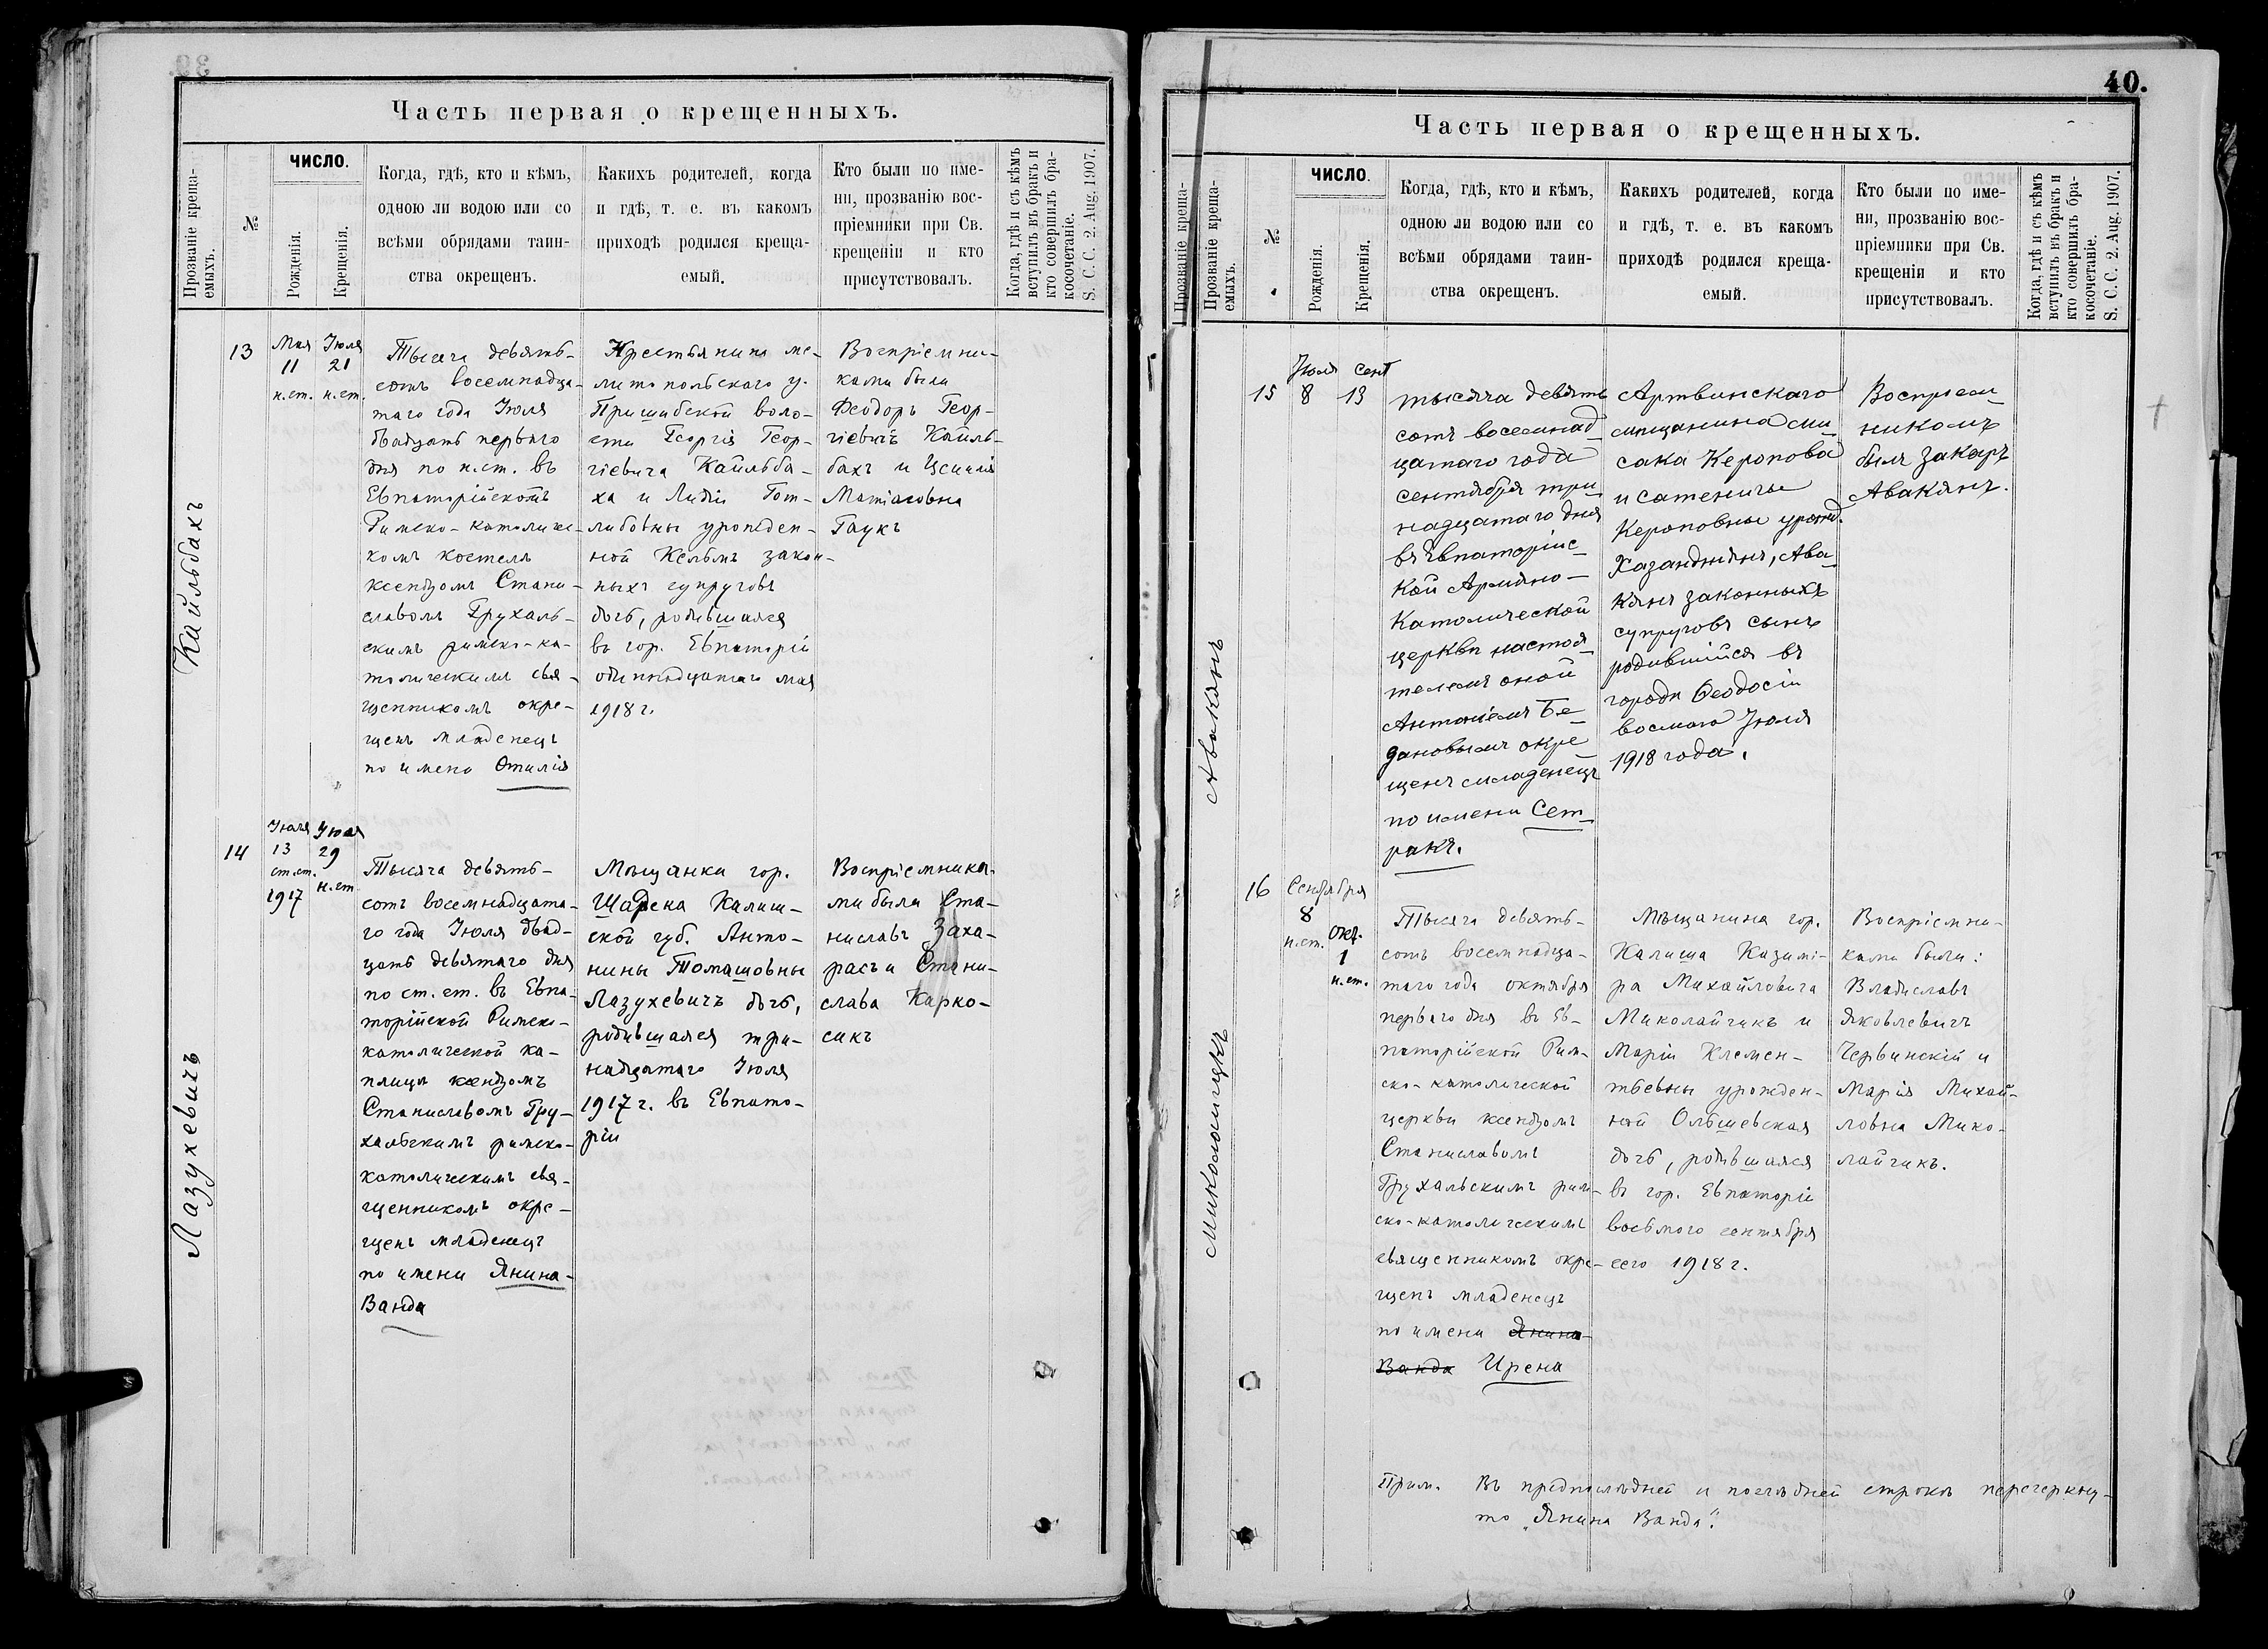 39
Часть первая о крещенныхъ.
Прозваніе креща-
емыхъ.
№
ЧИСЛО.
Рожденія.
Крещенія.
Когда, гдѣ, кто и кѣмъ,
одною ли водою или со
всѣми обрядами таин-
ства окрещенъ.
Какихъ родителей, когда
и гдѣ, т. е. въ какомъ
приходѣ родился креща-
емый.
Кто были по име-
ни, прозванію вос-
пріемники при Св.
крещеніи и кто
присутствовалъ.
Когда, гдѣ и съ кѣмъ
вступилъ въ бракъ и
кто совершилъ бра-
косочетаніе.
S. C. C. 2. Aug. 1907.
Кайльбахъ
13
Мая
11
н.ст.
Іюля
21
н.ст.
Тысяча девять-
сотъ восемнадца-
таго года Іюля
двадцать перваго
дня по н.ст. въ
Евпаторійскомъ
Римско-католичес-
комъ костелѣ
ксендзомъ Стани-
славомъ Грухаль-
скимъ римско-ка-
толическимъ свя-
щенникомъ окре-
щенъ младенецъ
по имени Отилія
Крестьянина ме-
литопольскаго у.
Пришибской воло-
сти Георгія Геор-
гіевича Кайльба-
ха и Лидіи Гот-
либовны урожден-
ной Кельмъ закон-
ныхъ супруговъ
дочь, родившаяся
въ гор. Евпаторіи
одиннадцатаго мая
1918 г.
Воспріемни-
ками были
Феодоръ Геор-
гіевичъ Кайль-
бахъ и Цецилія
Матіасовна
Гаукъ
Лазухевичъ
14
Іюля
13
ст.ст.
1917
Іюля
29
н.ст
Тысяча девять-
сотъ восемнадцата-
го года Іюля двад-
цать девятаго дня
по ст. ст. въ Евпа-
торійской Римско-
католической ка-
плицѣ ксендзомъ
Станиславомъ Гру-
хальскимъ римско-
католическимъ свя-
щенникомъ окре-
щенъ младенецъ
по имени Янина-
Ванда
Мѣщанки гор.
Шадека Калиш-
ской губ. Анто-
нины Томашовны
Лазухевичъ дочь,
родившаяся три-
надцатаго Іюля
1917 г. въ Евпато-
ріи
Воспріемника-
ми были Ста-
ниславъ Заха-
расъ и Стани-
слава Карко-
сикъ
40.
Часть первая о крещенныхъ.
Прозваніе креща-
Прозваніе креща-
емыхъ.
№
ЧИСЛО.
Рожденія.
Крещенія.
Когда, гдѣ, кто и кѣмъ,
одною ли водою или со
всѣми обрядами таин-
ства окрещенъ.
Какихъ родителей, когда
и гдѣ, т. е. въ какомъ
приходѣ родился креща-
емый.
Кто были по име-
ни, прозванію вос-
пріемники при Св.
крещеніи и кто
присутствовалъ.
Когда, гдѣ и съ кѣмъ
вступилъ въ бракъ и
кто совершилъ бра-
косочетаніе.
S. C. C. 2. Aug. 1907.
Авакянъ
15
Іюля
8
сент
13
тысяча девять
сотъ восемнад
цатаго года
сентября три
надцатаго дня
въ Евпаторійс
кой Армяно-
Католической
церкви настоя
телемъ оной
Антоніемъ Бе-
дановымъ окре
щенъ младенецъ
по имени Сет-
ракъ.
Артвинскаго
мѣщанина Ми
сака Керопова
и Сатеничы
Кероповны урожд.
Казанджянъ, Ава
кянъ законныхъ
супруговъ сынъ
родившійся въ
городѣ Ѳеодосіи
восмого Іюля
1918 года.
Воспріем
никомъ
былъ Закаръ
Авакянъ.
Миколайчикъ
16
Сентября
8
н.ст.
окт.
1
н.ст.
Тысяча девять-
сотъ восемнадца-
таго года октября
перваго дня въ Ев-
паторійской Рим-
ско-католической
церкви ксендзомъ
Станиславомъ
Грухальскимъ рим-
ско-католическимъ
священникомъ окре-
щенъ младенецъ
по имени Янина-
Ванда Ирена
Мѣщанина гор.
Калиша Казимі-
ра Михайловича
Миколайчикъ и
Маріи Клемен-
тьевны урожден-
ной Ольшевская
дочь, родившаяся
въ гор. Евпаторіи
восьмого сентября
сего 1918 г.
Воспріемни-
ками были:
Владиславъ
Яковлевичъ
Червинскій и
Марія Михай-
ловна Мико-
лайчикъ.
Прим. Въ предпослѣдней и послѣдней строкѣ перечеркну-
то „Янина Ванда".